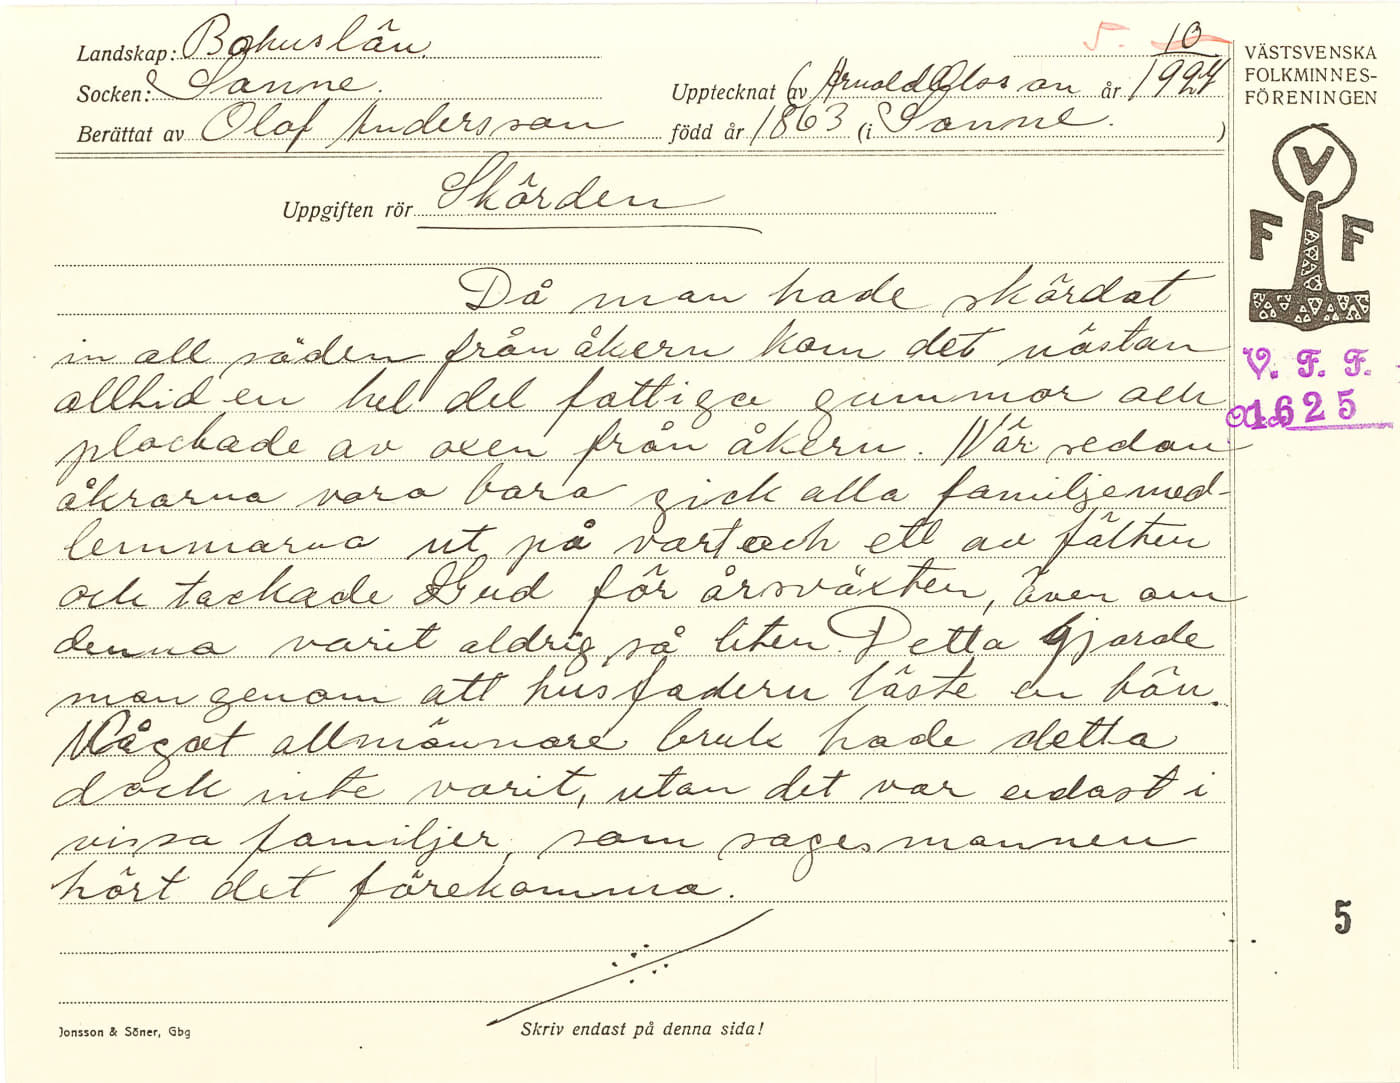 Landskap: Bohuslän.
5. 10
Socken: Sanne.
Upptecknat av Arnold Olosson år 1927
Berättat av Olof Andersson född år 1863 (i Sanne. )
Uppgiften rör Skörden
Då man hade skördat
in all säden från åkern kom det nästan
alltid en hel del fattiga gummor och
plockade av axen från åkern. När sedan
åkrarna voro bara gick alla familjemed-
lemmarna ut på vart och ett av fälten
och tackade Gud för årsväxten, även om
denna varit aldrig så liten. Detta gjorde
man genom att husfadern läste en bön.
Något allmännare bruk hade detta
dock inte varit, utan det var endast i
vissa familjer, som sagesmannen
hört det förekomma.
Jonsson & Söner, Gbg
Skriv endast på denna sida!
VÄSTSVENSKA
FOLKMINNES-
FÖRENINGEN
V
F F
V. F. F.
1625
5